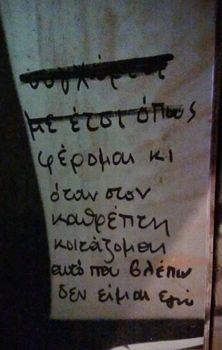 συγχώρα
με έτσι όπως
φέρομαι κι
όταν στον
καθρέπτη
κοιτάζομαι
αυτό που βλέπω
δεν είμαι εγώ